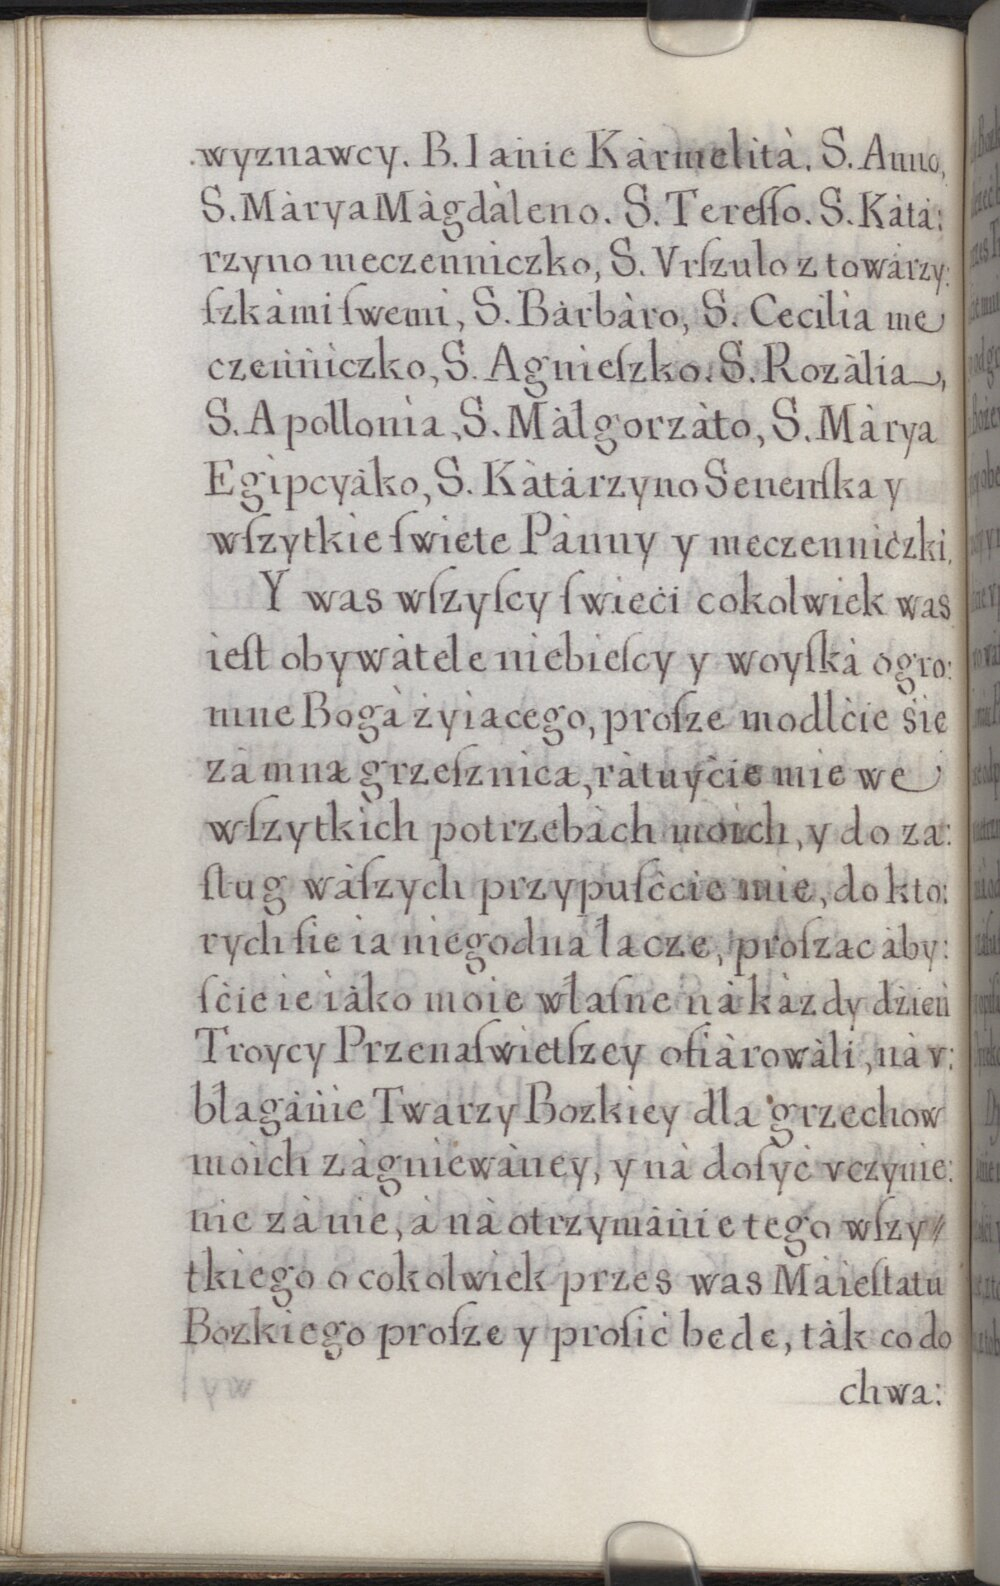 wyznawcy. B. Ianie Kàrmelità. S. Anno,
S. Màrya Màgdàleno. S. Tereſſo. S. Kàtà:
rzyno meczenniczko, S. Vrſzulo z towàrzy:
ſzkàmi ſwemi, S. Bàrbàro, S. Cecilia me
czenniczko, S. Agnieſzko. S. Rozàlia,
S. Apollonia, S. Màlgorzàto, S. Màrya
Egipcyàko, S. Kàtàrzyno Senenſka y
wſzytkie ſwiete Pànny y meczenniczki.
Y was wſzyſcy ſwieći cokolwiek was
ieſt obywàtele niebieſcy y woyſkà ogro:
mne Bogà żyiacego, proſze modlćie śie
zà mna grzeſznica, ràtuyćie mie we
wſzytkich potrzebàch moich, y do za:
ſług wàſzych przypuſććie mie, do kto:
rych ſie ia niegodna łacze, proſzac àby:
ſćie ie iàko moie własne nà kàzdy dźień
Troycy Przenaſwietſzey ofiàrowàli, nà v:
błagànie Twarzy Bozkiey dla grzechow
moich zàgniewàney, y nà doſyć vczynie:
nie zà nie, à nà otrzymànie tego wſzy//
tkiego o cokolwiek przes was Maieſtatu
Bozkiego proſze y proſić bede, tàk co do
chwa: